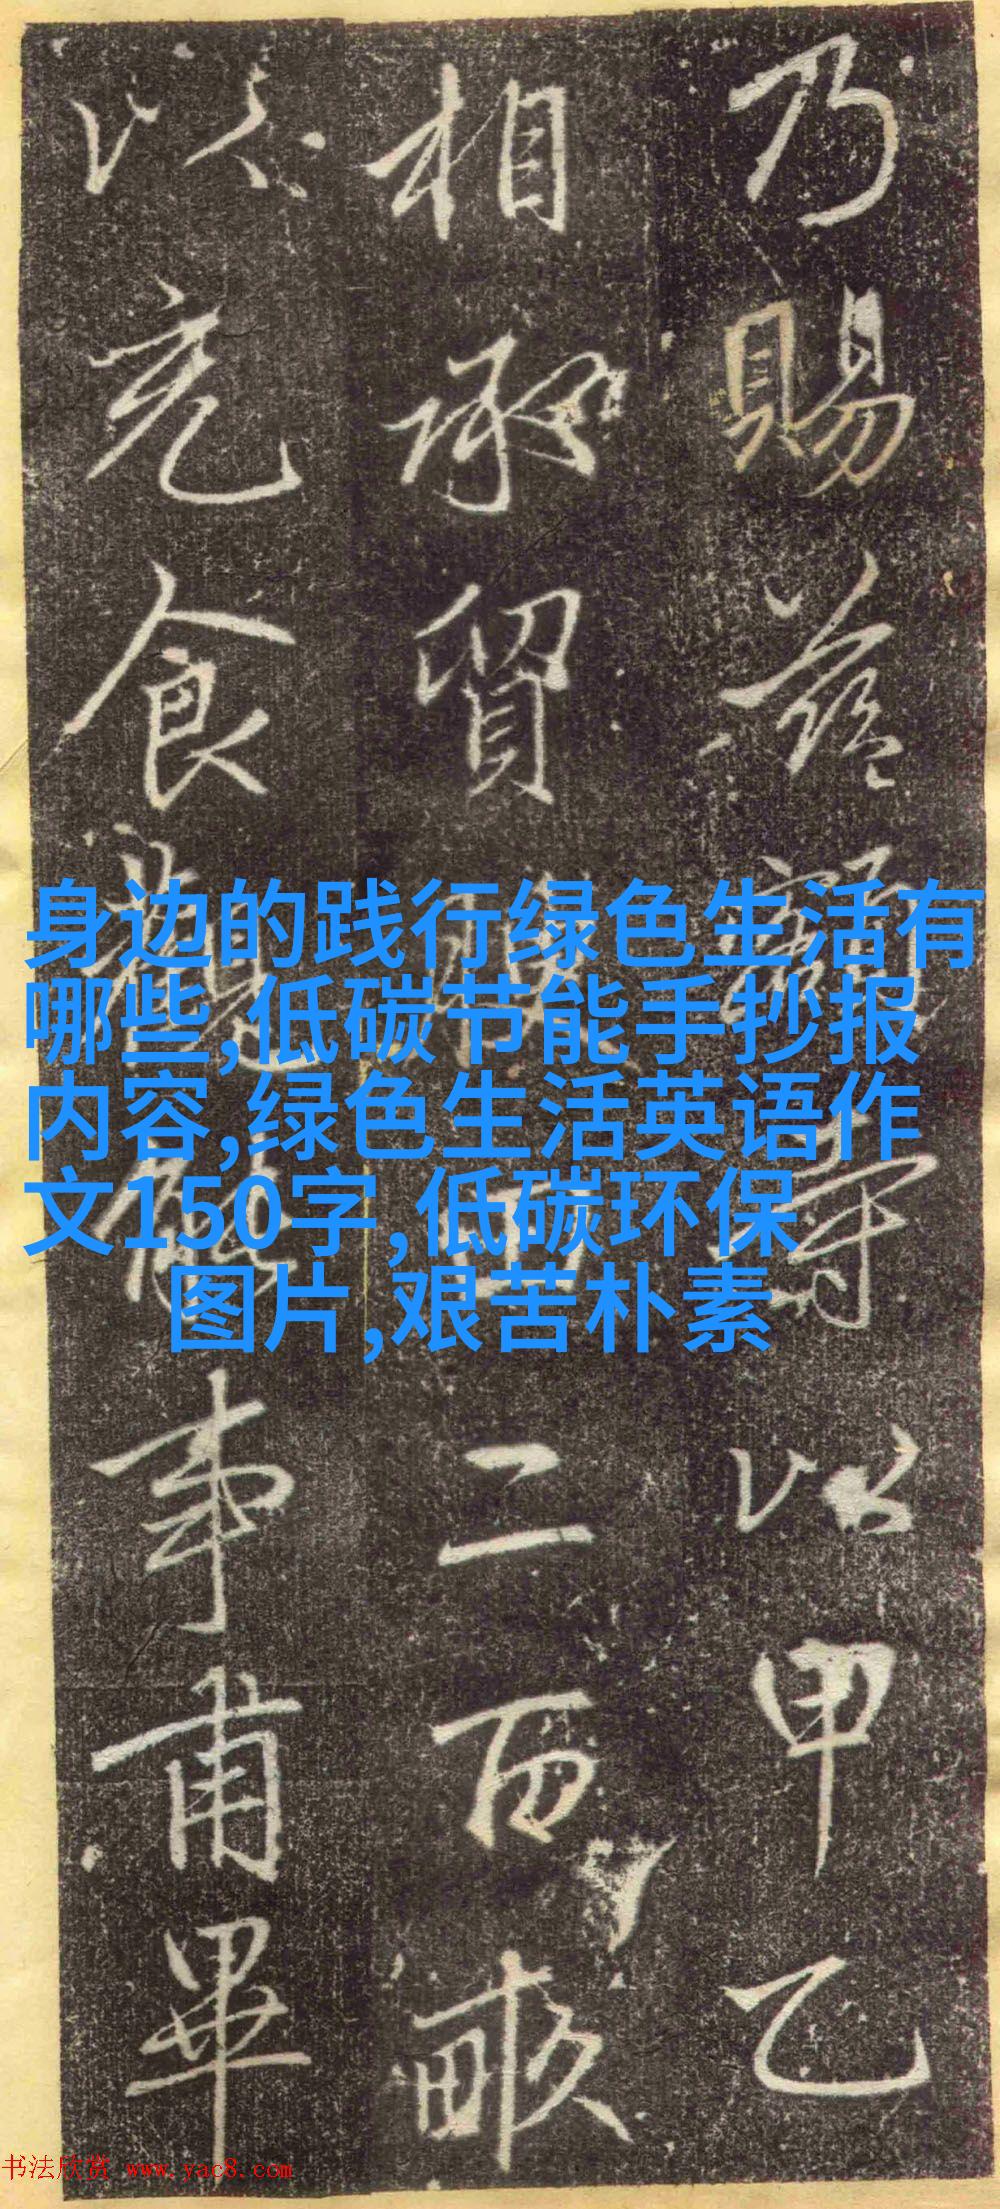 乃賜益
以甲乙
相承貿
二百畝
以充食
事甫畢
身边的践行绿色生活有
哪些,低碳节能手抄报
内容,绿色生活英语作
文150字,低碳环保
图片,艰苦朴素
书法欣赏 www.yac8.com